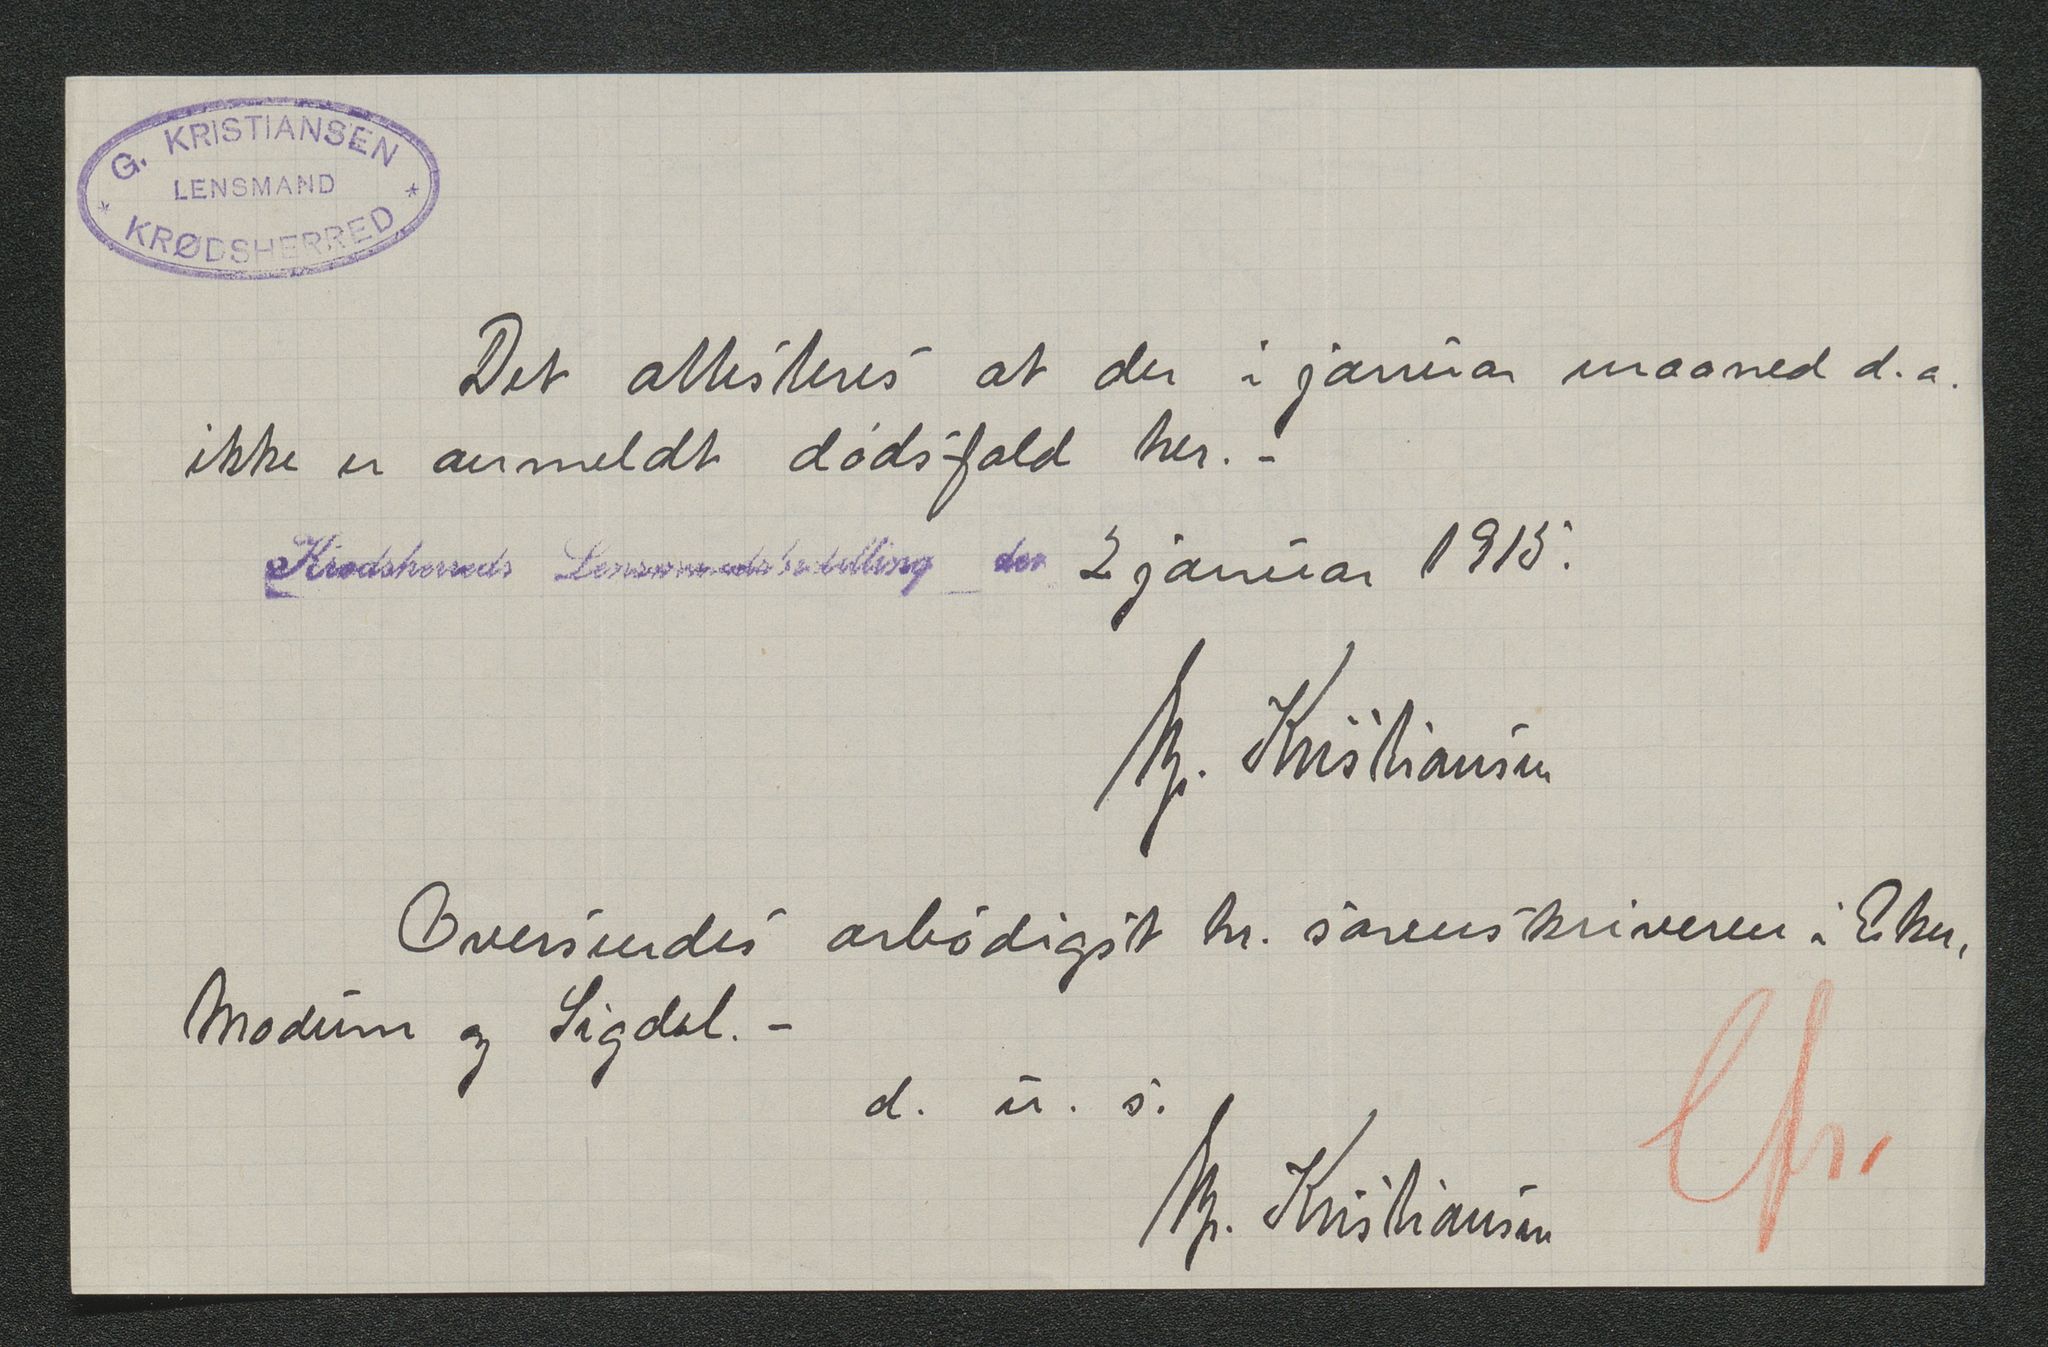 G. KRISTIANSEN
LENSMAND
KRØDSHERRED
Det attesteres at der i januar maaned d.a.
ikke er anmeldt dødsfald her. -
Krødsherreds Lensmandsbestilling den 2 januar 1915.
G. Kristiansen
Oversendes ærbødigst hr. sorenskriveren i Eker,
Modum og Sigdal. -
d. u. s.
G. Kristiansen